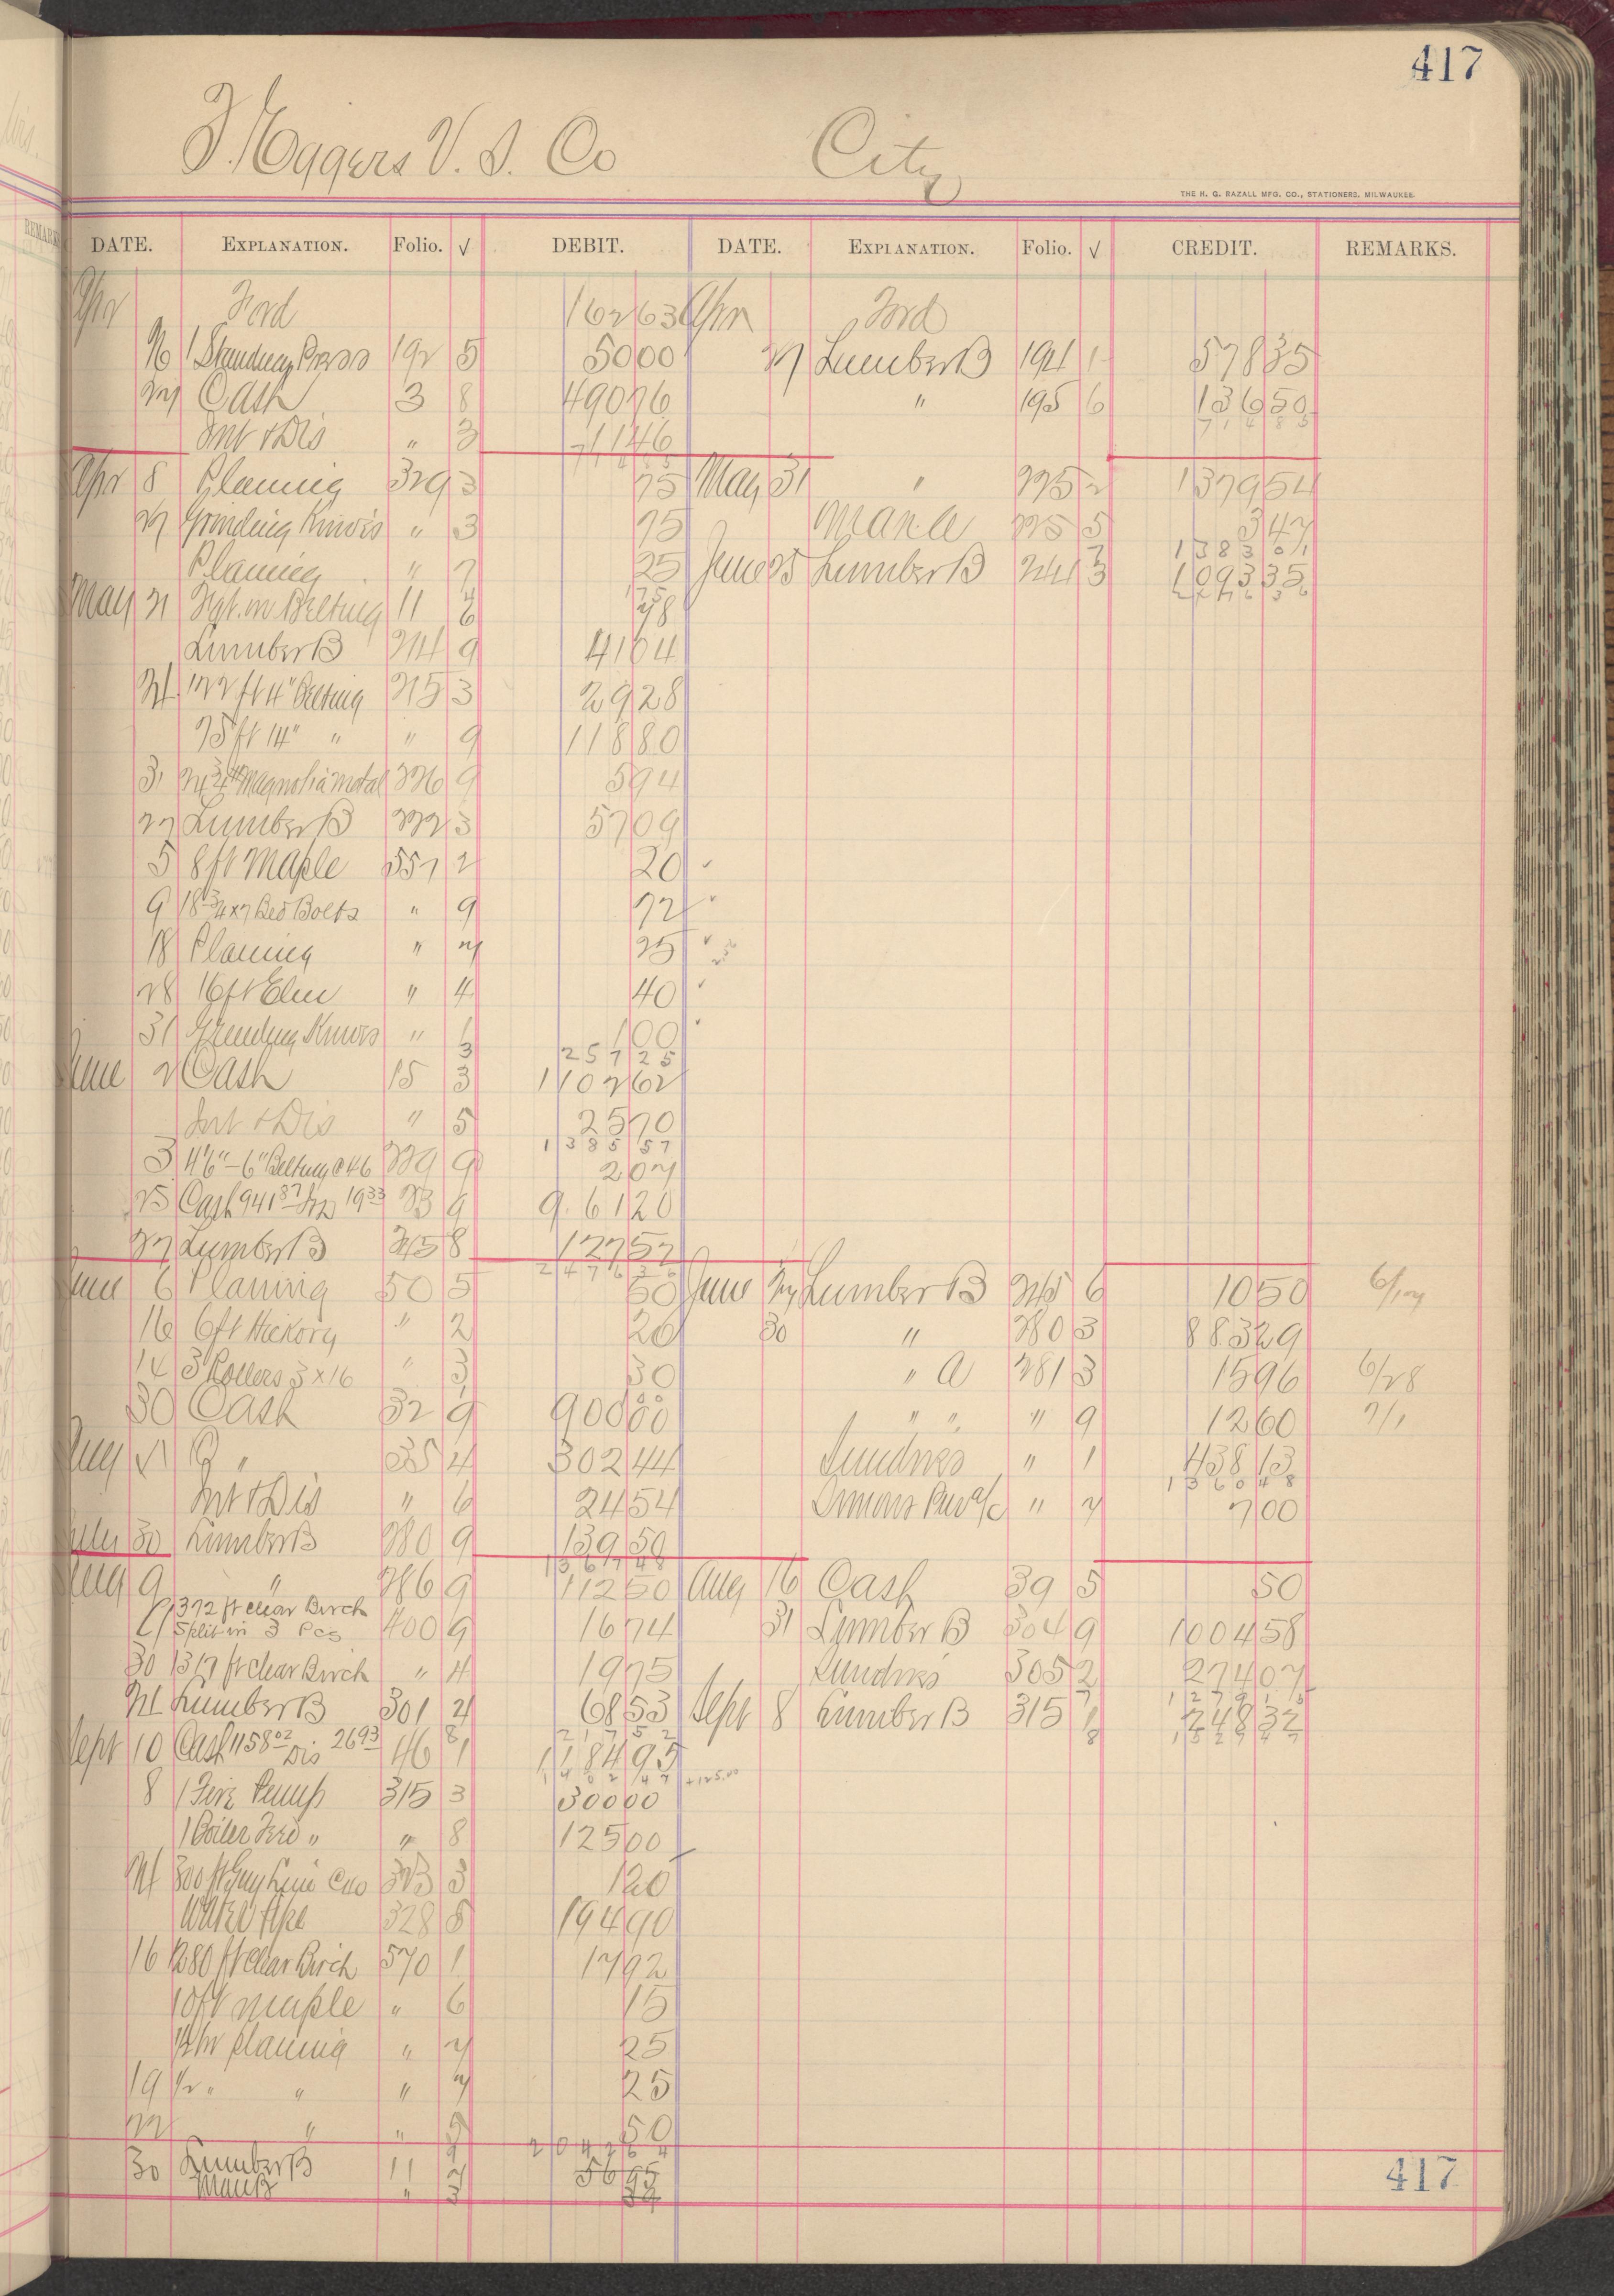 417
F. Eggers V. S. Co City
THE H. G. RAZALL MFG. CO., STATIONERS, MILWAUKEE.
DATE. EXPLANATION. Folio. √ DEBIT. DATE. EXPLANATION. Folio. √ CREDIT. REMARKS.
Apr Ford 162 63 Apr Ford
26 1 Press 192 5 50 00 27 Lumber B 194 1 578 35
27 Cash 3 8 490 76 " 195 6 136 50
Int & Dis " 3 11 46
714 85
Apr 8 Planing 329 3 75 May 31 " 225 2 1379 54
27 Grinding Knives " 3 75 Man. A 225 5 3 47
1383 01
Planing " 7 25 June 25 Lumber B 244 3 1093 35
1 75
2476 36
May 21 Fgt. on Belting 11 6 78
Lumber B 214 9 41 04
24 122 ft 4" Belting 215 3 29 28
75 ft 14" " " 9 118 80
31 24 3/4 # Magnolia Metal 226 9 5 94
27 Lumber B 222 3 57 09
5 8 ft Maple 551 2 20 ✓
9 18 3/4 x 7 Bed Bolts " 9 72 ✓
18 Planing " 7 25 ✓
28 16 ft Elm " 4 40 ✓
31 Grinding Knives " 1 1 00 ✓
257 25
June 2 Cash 15 3 1102 62
Int & Dis " 5 25 70
1385 57
3 4'6"-6" Belting @ 46 229 9 2 07
25 Cash 941 87 Dis 19 33 23 9 961 20
27 Lumber B 245 8 127 52
2476 36
June 6 Planing 50 5 50 June 27 Lumber B 245 6 10 50 6/17
16 6 ft Hickory " 2 20 30 " 280 3 883 29
14 3 Rollers 3 x 16 " 3 30 " A 281 3 15 96 6/28
30 Cash 32 9 900 00 " " " 9 12 60 7/1
Aug 21 " 35 4 302 44 Sundries " 1 438 13
1360 48
Int & Dis " 6 24 54 " 7 7 00
July 30 Lumber B 280 9 139 50
1367 48
Aug 9 " 286 9 112 50 Aug 16 Cash 39 5 50
372 ft clear Birch
Split in 3 Pcs 400 9 16 74 31 Lumber B 304 9 1004 58
30 1317 ft clear Birch " 4 19 75 Sundries 305 2 274 07
24 Lumber B 301 4 68 53 Sept 8 Lumber B 315 1 248 32
217 52
Sept 10 Cash 1158 02 Dis 26 93 46 1 1184 95
1402 47 +125.00
8 1 Fire Pump 315 3 300 00
1 Boiler Feed " " 8 125 00
24 300 ft 323 3 1 20
Water Pipe 328 8 194 90
16 1280 ft clear Birch 570 1 17 92
10 ft maple " 6 15
1/2 hr planing " 7 25
19 1/2 " " " 7 25
22 " " 9 50
2042 64
30 Lumber B 11 7 56 95
Man B " 3 34
417